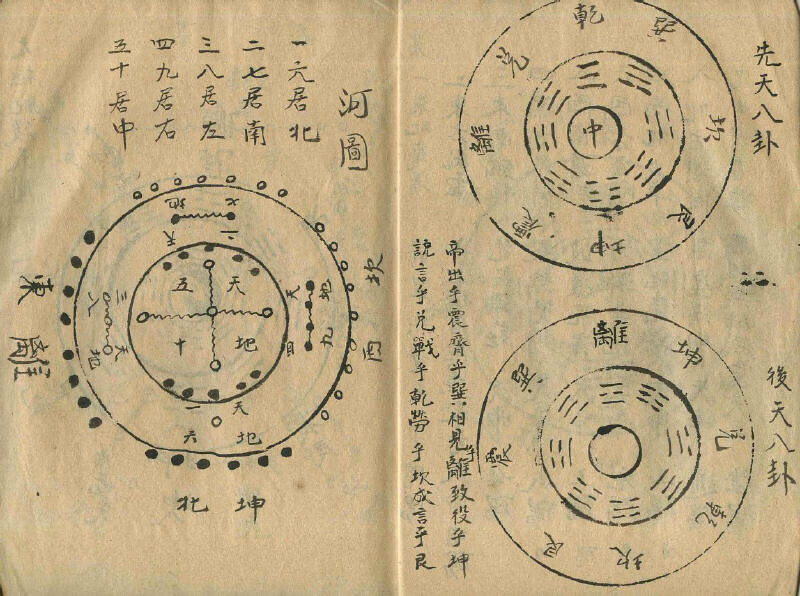 先天八卦
乾
巽
坎
艮
坤
震
離
兌
中
後天八卦
離
坤
兌
乾
坎
艮
震
巽
帝出乎震齊乎巽相見乎離致役乎坤
說言乎兌戰乎乾勞乎坎成言乎艮
河圖
一六居北
二七居南
三八居左
四九居右
五十居中
地七
天二
坎西
地九
天四
天五
地十
天三
地八
東離
天一
地六
北坤